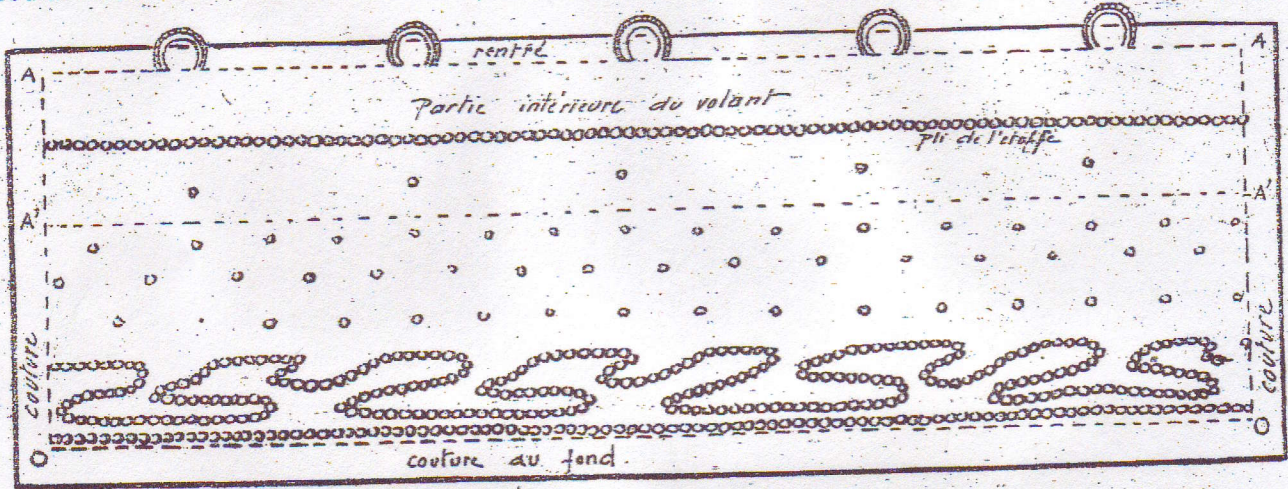 rentré
A
A
Partie intérieure du volant
pli de l'étoffe
A'
A'
couture
couture
O
O
couture au fond